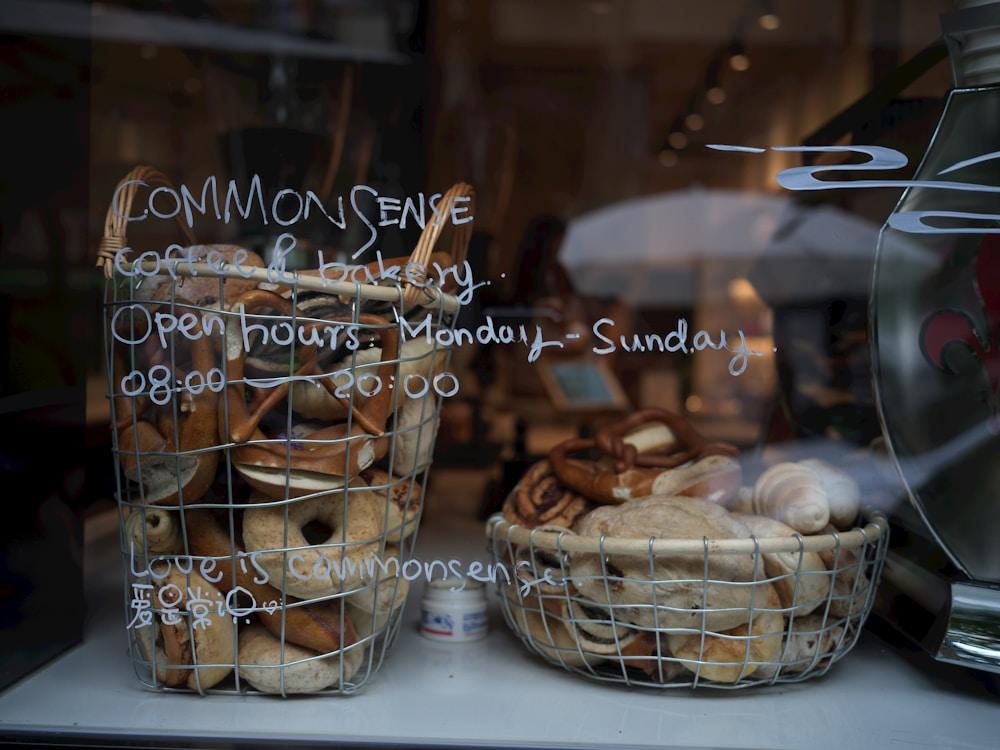 COMMONSENSE
coffee & bakery.
Open hours: Monday - Sunday.
08:00 — 20:00
Love is commonsense.
爱是常识